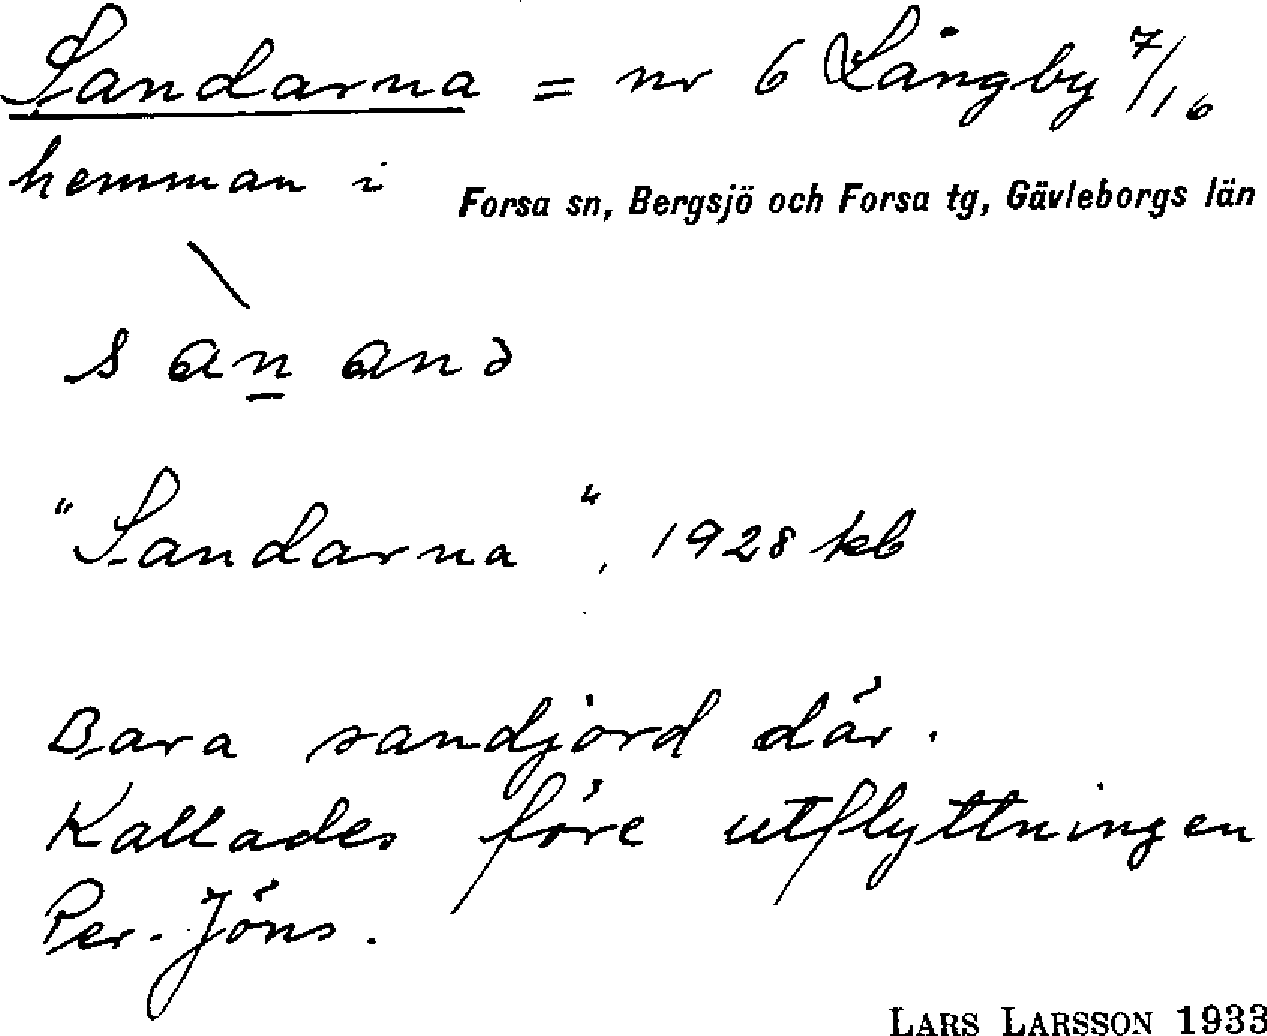 Sandarna = nr 6 Långby 7/16
hemman i Forsa sn, Bergsjö och Forsa tg, Gävleborgs län
\
s an̲ anə
"Sandarna", 1928 kb
Bara sandjord där.
Kallades före utflyttningen
Per-Jöns.
LARS LARSSON 1933